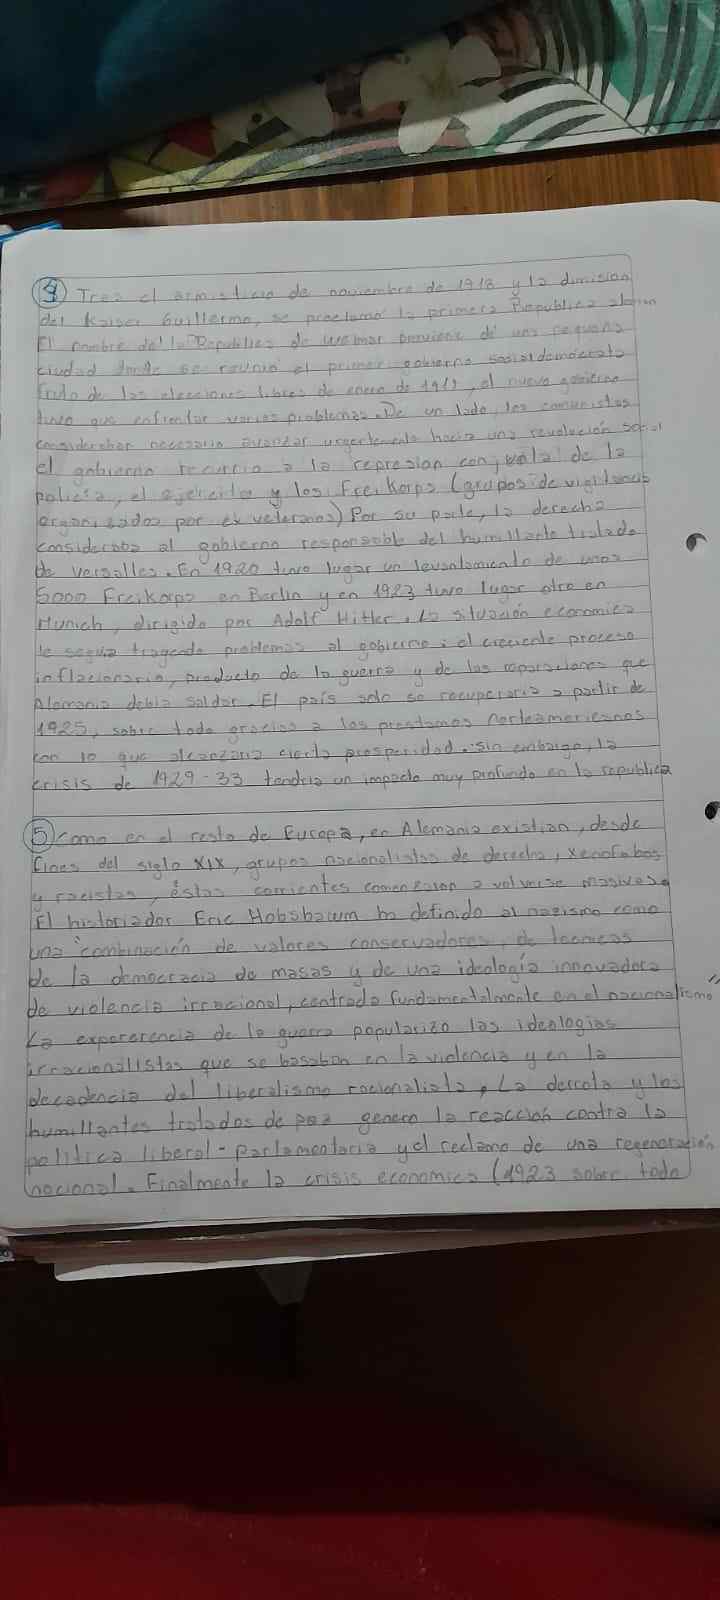 ④ Tras el armisticio de noviembre de 1918 y la dimision
del Kaiser Guillermo, se proclamó la primera Republica
El nombre de la "Republica de Weimar proviene de una pequeña
ciudad donde se reunió el primer gobierno socialdemócrata
fruto de las elecciones libres de enero de 1919, el nuevo gobierno
tuvo que enfrentar varios problemas. De un lado, los comunistas
consideraban necesario avanzar urgentemente hacia una revolución social
el gobierno recurrio a la represion conjunta de la
policía, el ejercito y los Freikorps (grupos de vigilancia
organizados por ex veteranos) Por su parte, la derecha
consideraba al gobierno responsable del humillante tratado
de versalles. En 1920 tuvo lugar un levantamiento de unos
5000 Freikorps en Berlin y en 1923 tuvo lugar otro en
Munich, dirigido por Adolf Hitler. La situación economica
le seguia trayendo problemas al gobierno: el creciente proceso
inflacionario, producto de la guerra y de las reparaciones que
Alemania debia saldar. El país solo se recuperaria a partir de
1925, sobre todo gracias a los prestamos norteamericanos
con lo que alcanzaria cierta prosperidad. Sin embargo, la
crisis de 1929-33 tendria un impacto muy profundo en la republica
⑤ Como en el resto de Europa, en Alemania existian, desde
fines del siglo XIX, grupos nacionalistas de derecha, xenofobos
y racistas, éstas corrientes comenzaron a volverse masivas.
El historiador Eric Hobsbawm ha definido al nazismo como
una "combinación de valores conservadores, de tecnicas
de la democracia de masas y de una ideología innovadora
de violencia irracional, centrada fundamentalmente en el nacionalismo"
La expererencia de la guerra popularizo las ideologias
irracionalistas que se basaban en la violencia y en la
decadencia del liberalismo racionalista. La derrota y los
humillantes tratados de paz genero la reacción contra la
politica liberal-parlamentaria y el reclamo de una regeneración
nacional. Finalmente la crisis economica (1923 sobre todo